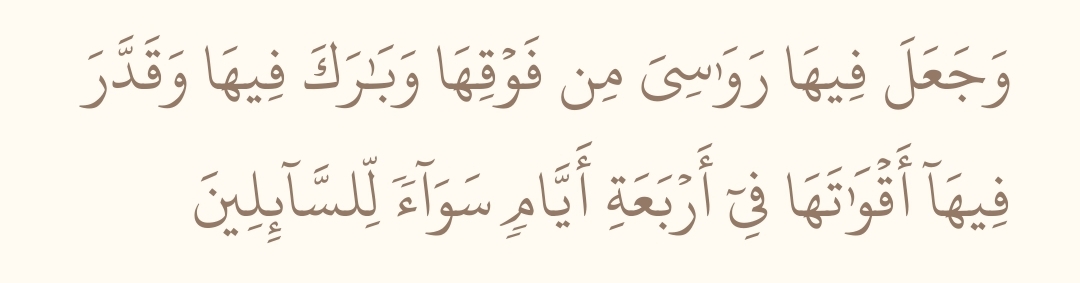 وَجَعَلَ فِيهَا رَوَٰسِىَ مِن فَوْقِهَا وَبَـٰرَكَ فِيهَا وَقَدَّرَ
فِيهَآ أَقْوَٰتَهَا فِىٓ أَرْبَعَةِ أَيَّامٍۢ سَوَآءًۭ لِّلسَّآئِلِينَ